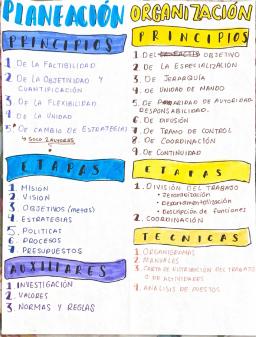 PLANEACIÓN
PRINCIPIOS
1. DE LA FACTIBILIDAD
2. DE LA OBJETIVIDAD Y
CUANTIFICACIÓN
3. DE LA FLEXIBILIDAD
4. DE LA UNIDAD
5. DE CAMBIO DE ESTRATEGIAS
↳ SOLO 2 AUTORES
ETAPAS
1. MISIÓN
2. VISIÓN
3. OBJETIVOS (metas)
4. ESTRATEGIAS
5. POLITICAS
6. PROCESOS
7. PRESUPUESTOS
AUXILIARES
1. INVESTIGACIÓN
2. VALORES
3. NORMAS Y REGLAS
ORGANIZACIÓN
PRINCIPIOS
1. DEL OBJETIVO
2. DE LA ESPECIALIZACIÓN
3. DE JERARQUÍA
4. DE UNIDAD DE MANDO
5. DE PARIDAD DE AUTORIDAD-
RESPONSABILIDAD.
6. DE DIFUSIÓN
7. DE TRAMO DE CONTROL
8. DE COORDINACIÓN
9. DE CONTINUIDAD
ETAPAS
1. DIVISIÓN DEL TRABAJO
• Jerarquización
• Departamentalización
• Descripción de funciones
2. COORDINACIÓN
TECNICAS
1. ORGANIGRAMAS
2. MANUALES
3. CARTA DE DISTRIBUCIÓN DEL TRABAJO
O DE ACTIVIDADES
4. ANALISIS DE PUESTOS